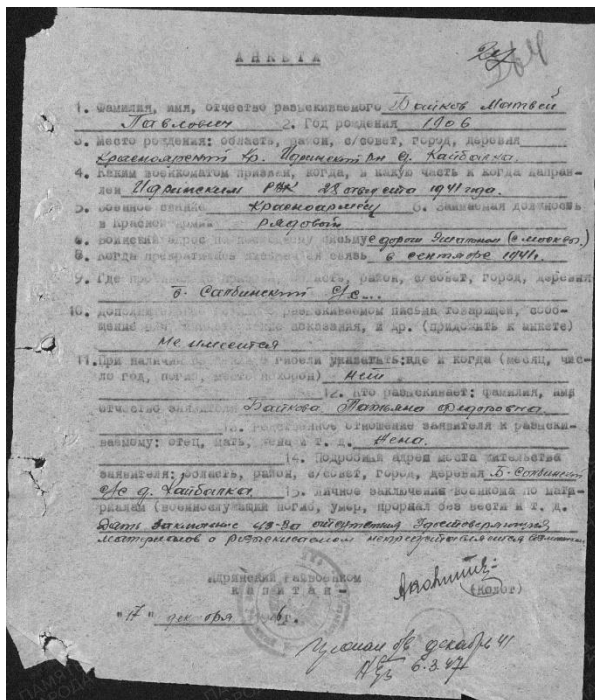 АНКЕТА
1. Фамилия, имя, отчество разыскиваемого Байков Матвей
Павлович 2. Год рождения 1906
3. Место рождения: область, район, с/совет, город, деревня
Красноярский кр. Идринский рн д. Хайбалка.
4. Каким военкоматом призван, когда, в какую часть и когда направ-
лен Идринским РВК 28 августа 1941 года.
5. Военное звание Красноармеец 6. Занимаемая должность
в Красной Армии рядовой
адрес по письму с дороги (с Москвы)
8. Когда прекратилась связь в сентябре 1941г.
9. Где область, район, с/совет, город, деревня
Б. Салбинский с/с
10. разыскиваемом письма товарищей, сооб-
щение и др. (приложить к анкете)
Не имеется
11. При наличии гибели указать: где и когда (месяц, чис-
ло год, похорон) Нет
12. Кто разыскивает: фамилия, имя
отчество заявителя Байкова Татьяна Федоровна
13. Родственное отношение заявителя к разыски-
ваемому: отец, мать, жена и т. д. Жена.
14. Подробный адрес места жительства
заявителя: область, район, с/совет, город, деревня Б-Салбинский
с/с д. Хайбалка 15. Личное заключение военкома по мате-
риалам (военнослужащий погиб, умер, пропал без вести и т. д.
Дать заключение из-за отсутствия удостоверяющих
материалов о разыскиваемом
Идринский Райвоенком
капитан-
"17" декабря 6г.
декабре 41
6.3.47